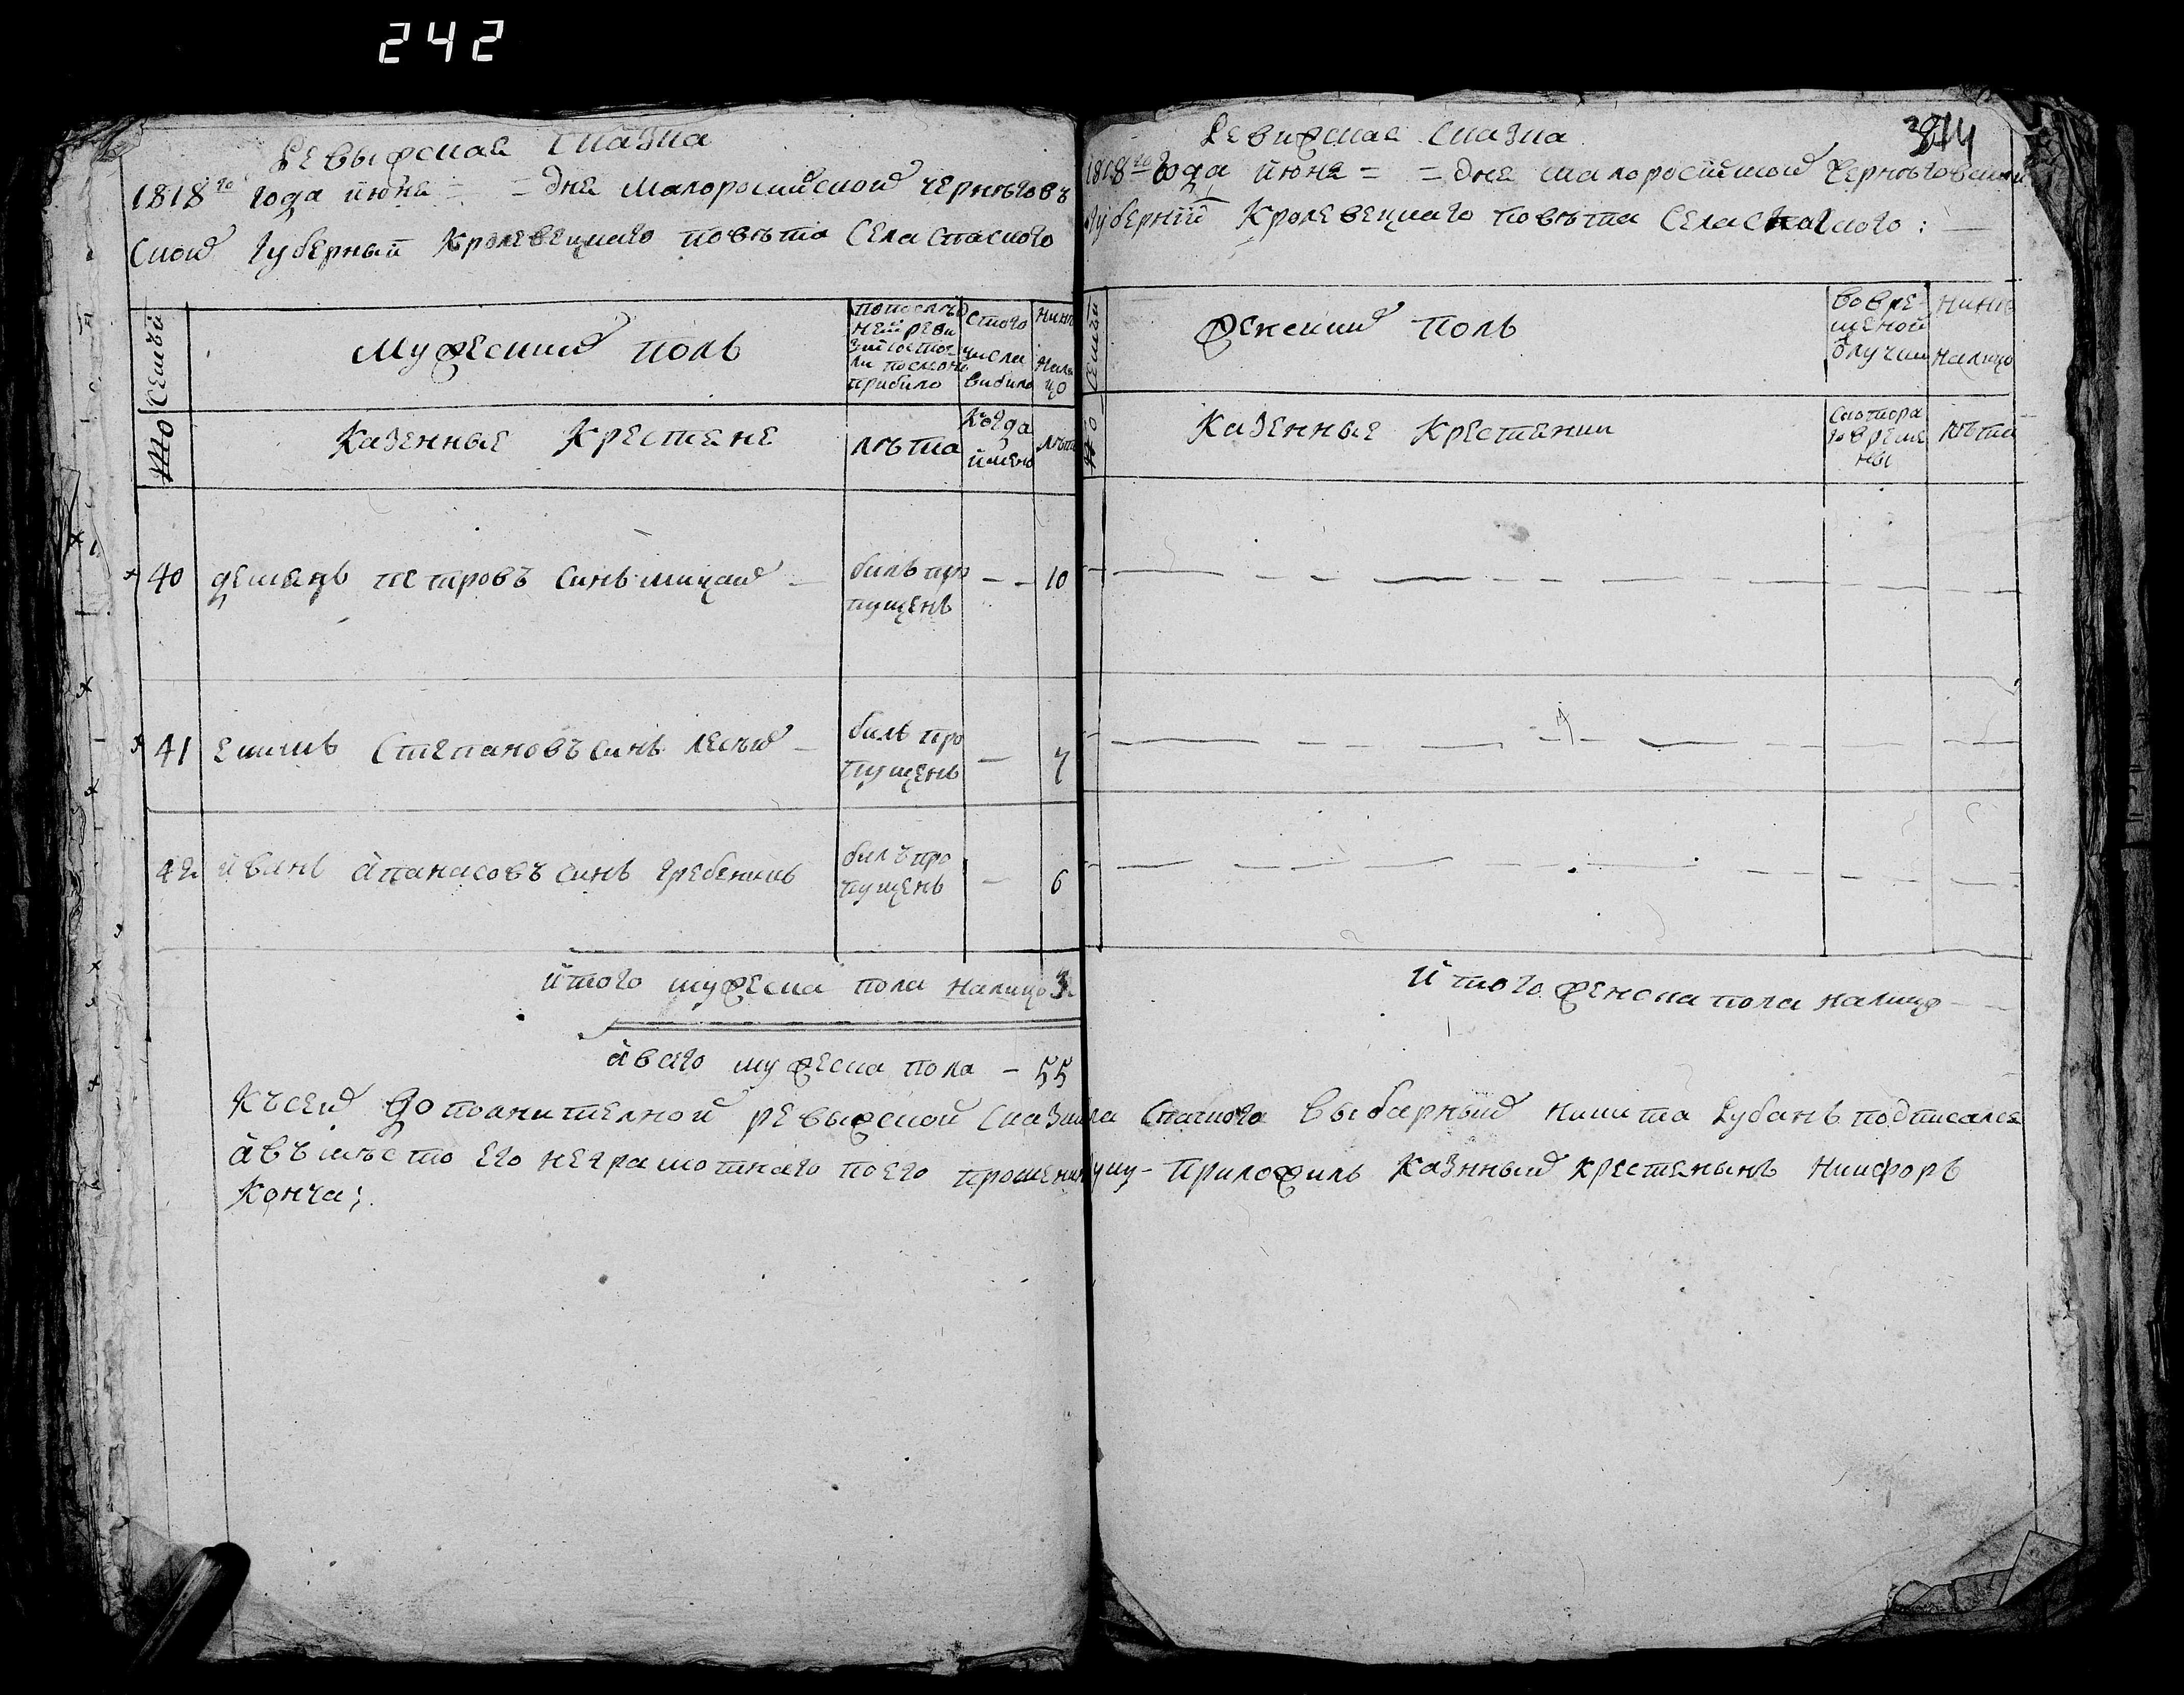 242
Ревыжская сказка
1818го года июня = = дня малоросийской чернѣговъ
ской губерный Кролевецкаго повѣта села спаского
семъи
Мужеский поль
попослѣд
ней реви
зыи состоя
ли послѣ онь
прибило
стого
числа
вибило
Нинѣ
нали
цо
Казенные Крестяне
лѣта
Когда
именно
лѣта
40 демянь петровъ синь мицай –
биль про
пущень
– –
10
41 Екимь Степановъ синь лесый –
биль про
пущень
–
7
42 ивань апанасовъ синь гребеникь
билъ про
пущень
–
6
итого мужеска пола налицо 3.
авсего мужеска пола – 55
Ревижская сказка
344
1818го года июня = = дня малоросийской Чернѣговской
губерний Кролевецкаго повѣта села спаского :
семъи
Женский поль
вовре-
меной
отлучки
Нинѣ
налицо
Казенные Крестянки
скотора
го време
ны
лѣта
итого женска пола налицо – –
Късей дополнителной ревыжской сказки села спаского выбарный никита Рубань подписался
авъмѣсто его неграмотнаго поего прошению руку приложиль казнный крестенынь Никифоръ
Конча;.